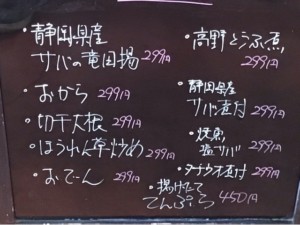 ・静岡県産
サバの竜田揚 299円
・おから 299円
・切干大根 299円
・ほうれん草炒め 299円
・おでん 299円
・高野とうふ煮
299円
・静岡県産
サバ煮付 299円
・焼魚
塩サバ 299円
・タチウオ煮付 299円
・揚げたて
てんぷら 450円